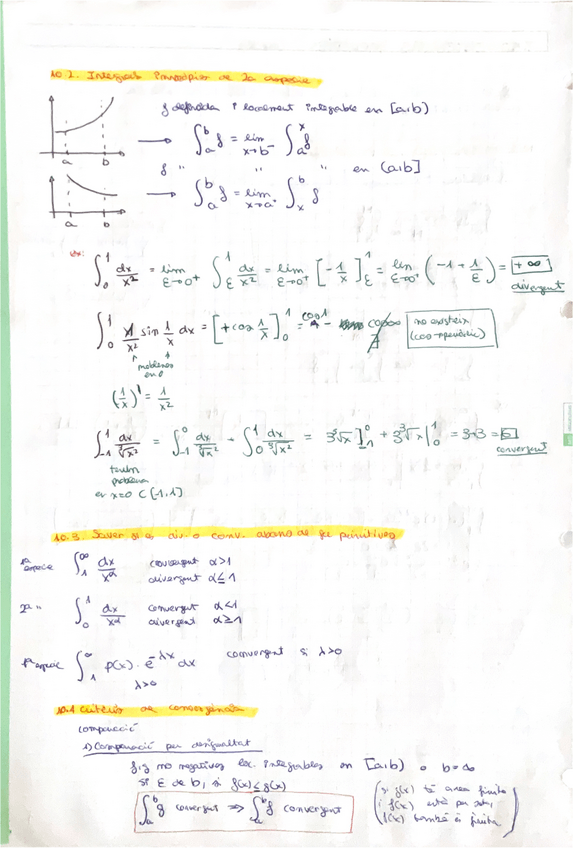 10.2. Integrals impròpies de 2a espècie
f definida i localment integrable en [a,b)
a b
→ ∫_a^b f = lim_{x→b⁻} ∫_a^x f
f " " " en (a,b]
→ ∫_a^b f = lim_{x→a⁺} ∫_x^b f
a b
ex:
∫_0^1 dx/x² = lim_{ε→0⁺} ∫_ε^1 dx/x² = lim_{ε→0⁺} [-1/x]_ε^1 = lim_{ε→0⁺} (-1 + 1/ε) = +∞
divergent
∫_0^1 1/x² sin 1/x dx = [+cos 1/x]_0^1 = cos 1 - cos ∞ no existeix
problemes
en 0
(1/x)' = 1/x²
∫_{-1}^1 dx/∛x² = ∫_{-1}^0 dx/∛x² + ∫_0^1 dx/∛x² = 3∛x]_{-1}^0 + 3∛x|_0^1 = 3+3 = 6
convergent
tenim
problema
en x=0 ⊂ [-1,1]
10.3. Saber si és div. o conv. abans de fer primitives
1a espècie ∫_1^∞ dx/x^α convergent α>1
divergent α≤1
2a " ∫_0^1 dx/x^α convergent α<1
divergent α≥1
1a espècie ∫_1^∞ p(x)·e^{-λx} dx convergent si λ>0
λ>0
10.4 Criteris de convergència
comparació
1) Comparació per desigualtat
f,g no negatives loc. integrables en [a,b) o b=∞
si E de b, si f(x)≤g(x)
∫_a^b g convergent ⇒ ∫_a^b f convergent
(si g(x) té area finita
i f(x) està per sota,
f(x) també és finita)